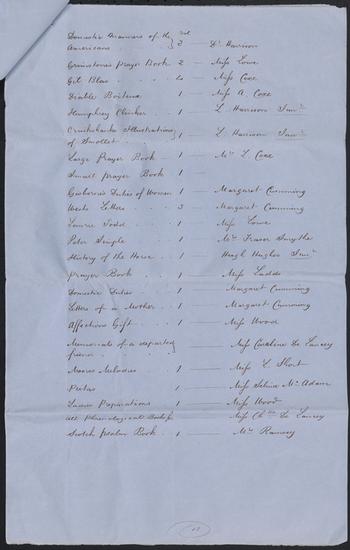 Domestic Manners of the
Americans . . . 2 — Dr Harrison
Grimstone's Prayer Book 2 — Miss Lowe
Gil Blas . . . 4 — Miss Coxe
Diable Boiteux . . 1 — Miss A. Coxe
Humphrey Clinker . . 1 — L Harrison Junr
Cruikshanks Illustrations
of Smollet . . 1 — L Harrison Junr
Large Prayer Book 1 — Mrs L Coxe
Small Prayer Book 1
Gisborne's Duties of Women 1 — Margaret Cumming
Wests Letters . . . 3 — Margaret Cumming
Lawrie Todd . . . 1 — Miss Lowe
Peter Simple . . 1 — Mrs Fraser Smythe
History of the Horse . . 1 — Hugh Hughes Junr
Prayer Book . . 1 — Miss Ladds
Domestic Duties . . 1 — Margaret Cumming
Letters of a Mother . . 1 — Margaret Cumming
Affections Gift . . . 1 — Miss Wood
Memorials of a departed
friend . . . — Miss Caroline De Lancey
Moores Melodies . . 1 — Miss L Short
Pietas . . . 1 — Miss Selina Mc Adam
Preparations 1 — Miss Wood
All Phrenological Books for Miss Chtte De Lancey
Scotch Psalm Book . 1 — Mrs Ramsey